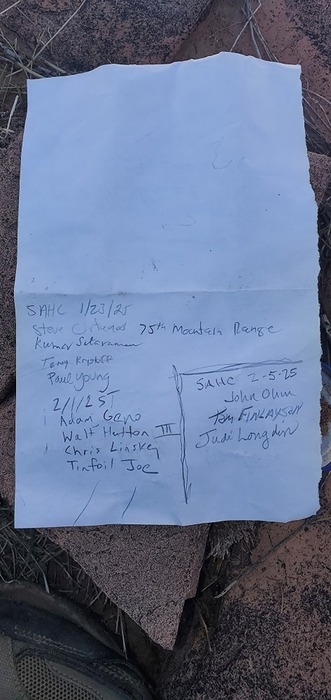 SAHC 1/23/25
Steve 75th Mountain Range
Kumar
Tony
Paul Young
2/1/25
Adam Geno
Walt Hutton III
Chris Linskey
Tinfoil Joe
SAHC 2-5-25
John Ohm
Tom FINLAYSON
Judi Longdin